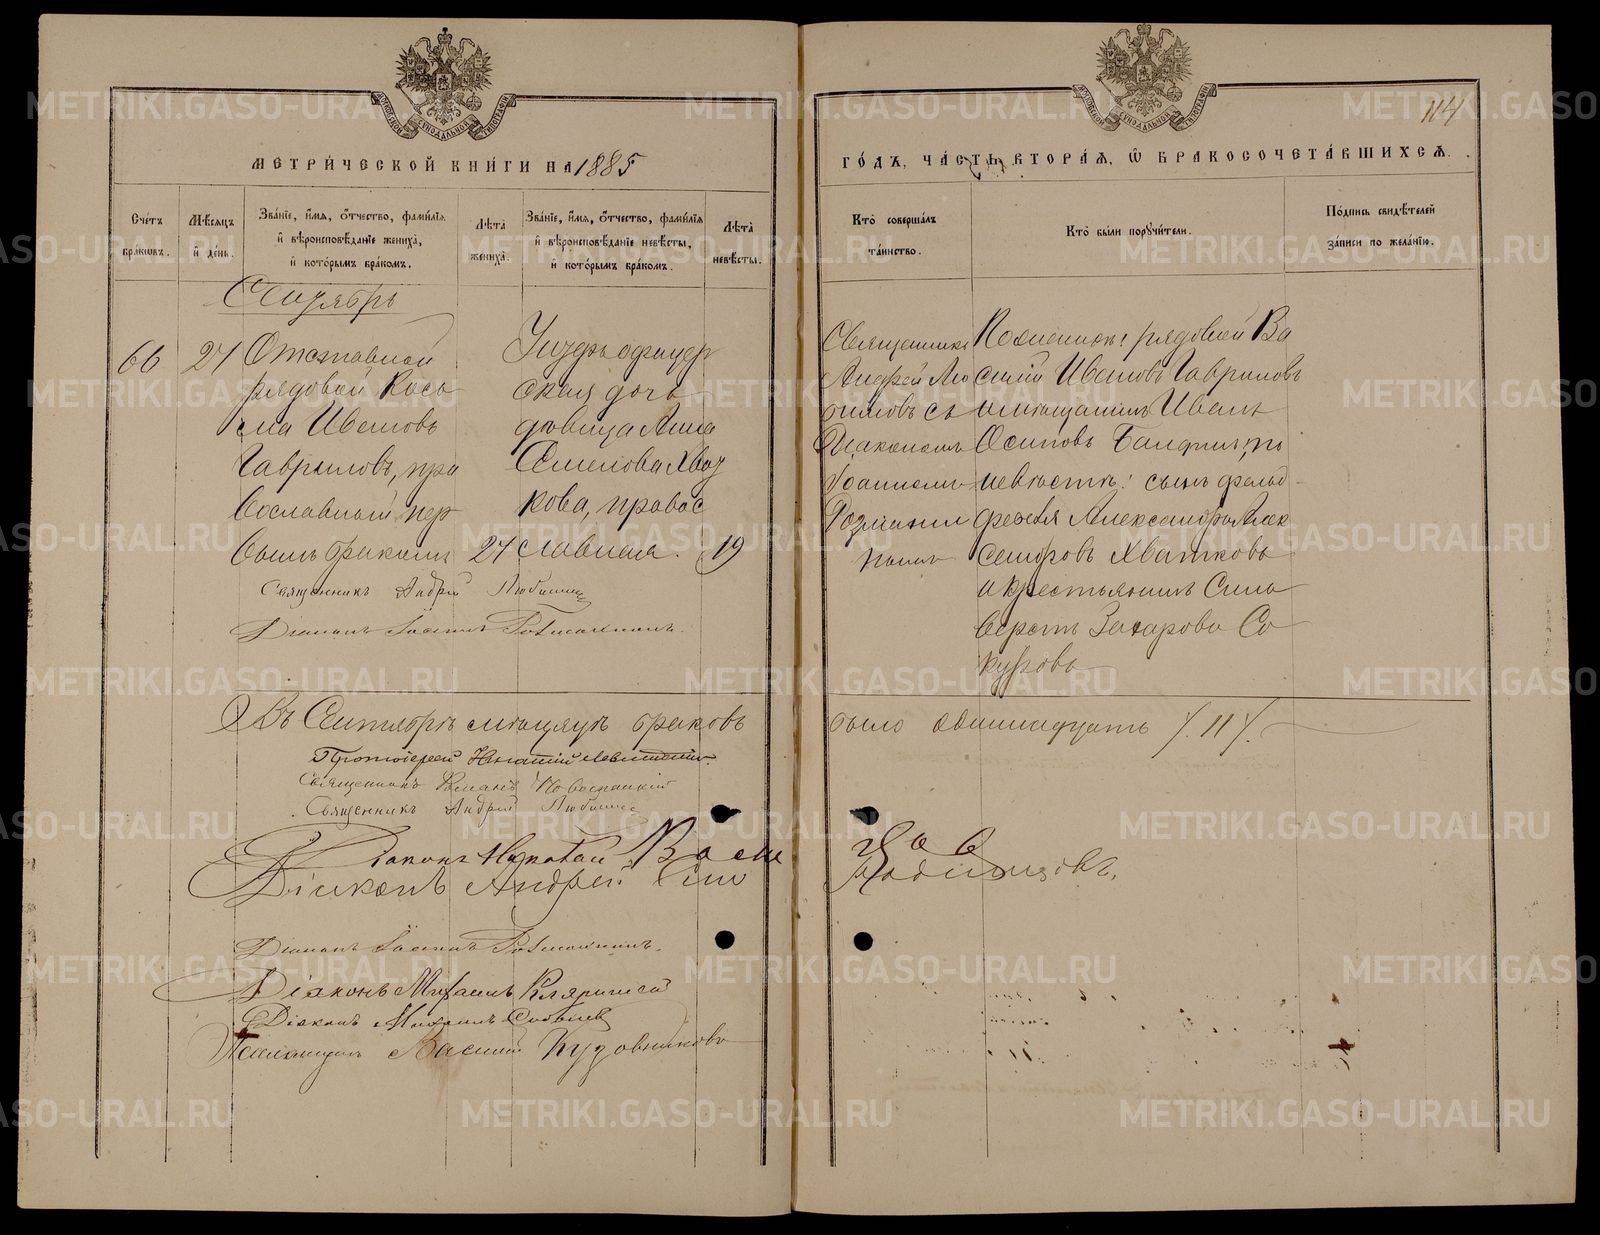 МОСКОВСКОЙ СѴНОДАЛЬНОЙ ТИПОГРАФІИ
МЕТРИ́ЧЕСКОЙ КНИ́ГИ НА 1885
Сче́тъ бра́ковъ.
Мѣ́сяцъ и де́нь.
Зва́нїе, и́мя, ѻ́тчество, фами́лїя и вѣроисповѣ́данїе жениха̀, и кото́рымъ бра́комъ.
Лѣта̀ жениха̀.
Зва́нїе, и́мя, ѻ́тчество, фами́лїя и вѣроисповѣ́данїе невѣ́сты, и кото́рымъ бра́комъ.
Лѣта̀ невѣ́сты.
Сентябрь
66
27
Отставной
рядовой Кось
ма Ивановъ
Гавриловъ, пра
вославный, пер
вымъ бракомъ
27
Унтеръ офицер
ская дочь
дѣвица Анна
Семенова Хват
кова, правос
лавная.
19
Священникъ Андрей Любимовъ
Діаконъ Іоаннъ
Въ Сентябрѣ мѣсяцѣ браковъ
Протоіерей Игнатій Левитскій
Священникъ Романъ
Священникъ Андрей Любимовъ
Діаконъ Николай
Діаконъ Андрей
Діаконъ Іоаннъ
Діаконъ Михаилъ
Діаконъ Михаилъ
Псаломщикъ Василій Кудовниковъ
МОСКОВСКОЙ СѴНОДАЛЬНОЙ ТИПОГРАФІИ
114
ГО́ДЪ, ЧА́СТЬ ВТОРА́Я, Ѽ БРАКОСОЧЕТА́ВШИХСЯ.
Кто̀ соверша́лъ та́инство.
Кто̀ бы́ли поручи́тели.
По́дпись свидѣ́телей за́писи по жела́нію.
Священникъ
Андрей Лю
бимовъ съ
Діакономъ
Іоанномъ
По женихѣ: рядовой Ва
силій Ивановъ Гавриловъ
и мѣщанинъ Иванъ
Осиповъ по
невѣстѣ: сынъ фельд
фебеля Александръ Алек
сандровъ Хватковъ
и крестьянинъ Сили
верстъ Захаровъ Со
куровъ
было одиннадцать /. 11 /.
METRIKI.GASO-URAL.RU